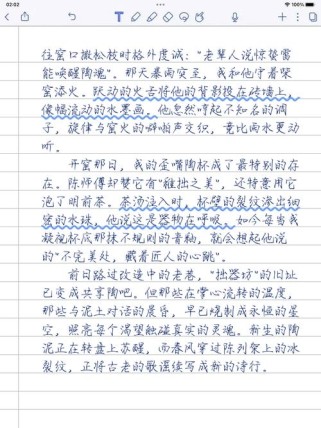 02:02
往窑口撒松枝时格外虔诚:“老辈人说惊蛰雷
能唤醒陶魂”。那天暴雨突至,我和他守着柴
窑添火。跃动的火舌将他的背影投在砖墙上,
像幅流动的水墨画。他忽然哼起不知名的调
子,旋律与窑火的噼啪声交织,竟比雨水更动
听。
开窑那日,我的歪嘴陶杯成了最特别的存
在。陈师傅却赞它有“雅拙之美”,还特意用它
泡了明前茶。茶汤注入时,杯壁的裂纹渗出细
密的水珠,他说这是器物在呼吸。如今每当我
凝视杯底那抹不规则的青釉,就会想起他说
的“不完美处,藏着匠人的心跳”。
前日路过改造中的老巷,“拙器坊”的旧址
已变成共享陶吧。但那些在掌心流转的温度,
那些与泥土对话的晨昏,早已烧制成永恒的星
空,照亮每个渴望触碰真实的灵魂。新生的陶
泥正在转盘上苏醒,而春风穿过陈列架上的冰
裂纹,正将古老的歌谣续写成新的诗行。